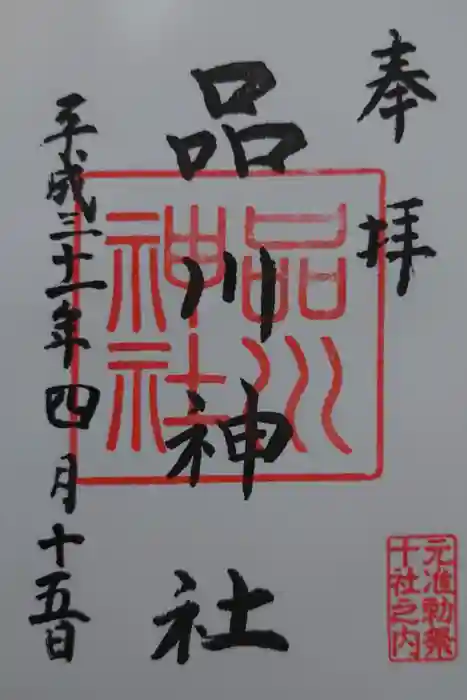 奉拝
品川神社
平成三十一年四月十五日
品川
神社
元准勅祭
十社之内